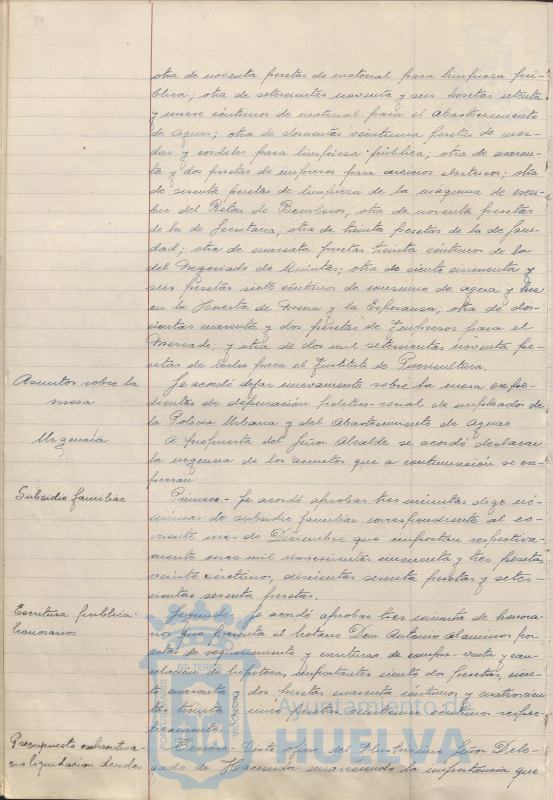 otra de noventa pesetas de material para limpieza pú-
blica; otra de setecientas noventa y seis pesetas setenta
y nueve céntimos de material para el Abastecimiento
de Aguas; otra de doscientas veintiuna pesetas de
das y cordeles para limpieza pública; otra de cuaren-
ta y dos pesetas de impresos para servicios electricos; otra
de sesenta pesetas de limpieza de la maquina de escri-
bir del Reten de Bomberos, otra de noventa pesetas
de la de Secretaria, otra de treinta pesetas de la de Sani-
dad; otra de cuarenta pesetas treinta céntimos de la
del Negociado de Quintas; otra de ciento cincuenta y
seis pesetas siete céntimos de consumo de agua y luz
en la Huerta de Mena y la Esperanza, otra de dos-
cientas cuarenta y dos pesetas de Impresos para el
Mercado; y otra de dos mil setecientas noventa pe-
setas de para el Instituto de Puericultura.
Asuntos sobre la mesa
Se acordó dejar nuevamente sobre la mesa expe-
dientes de depuración politico-social de empleados de
la Policia Urbana y del Abastecimiento de Aguas.
Urgencia
A propuesta del Señor Alcalde se acordó declarar
la urgencia de los asuntos que a continuación se ex-
presan:
Subsidio familiar
Primero- Se acordó aprobar tres minutas digo nó-
minas de subsidio familiar correspondiente al co-
rriente mes de Diciembre que importan respectiva-
mente once mil novecientas cincuenta y tres pesetas
veinte céntimos, doscientas sesenta pesetas y sete-
cientas sesenta pesetas.
Escritura publica-
honorarios
Segundo- Se acordó aprobar tres minuta de honora-
rios que presenta el notario Don Antonio por
de requerimiento y escrituras de compra-venta y can-
celación de hipoteca, importantes ciento dos pesetas,
cuarenta dos pesetas cuarenta céntimos y cuatrocien-
tas treinta cinco pesetas céntimos respec-
tivamente.
Presupuesto extraordina-
rio liquidacion deudas
Tercero- Visto oficio del Ilustrisimo Señor Dele-
gado de Hacienda la importancia que
Ayuntamiento de
HUELVA